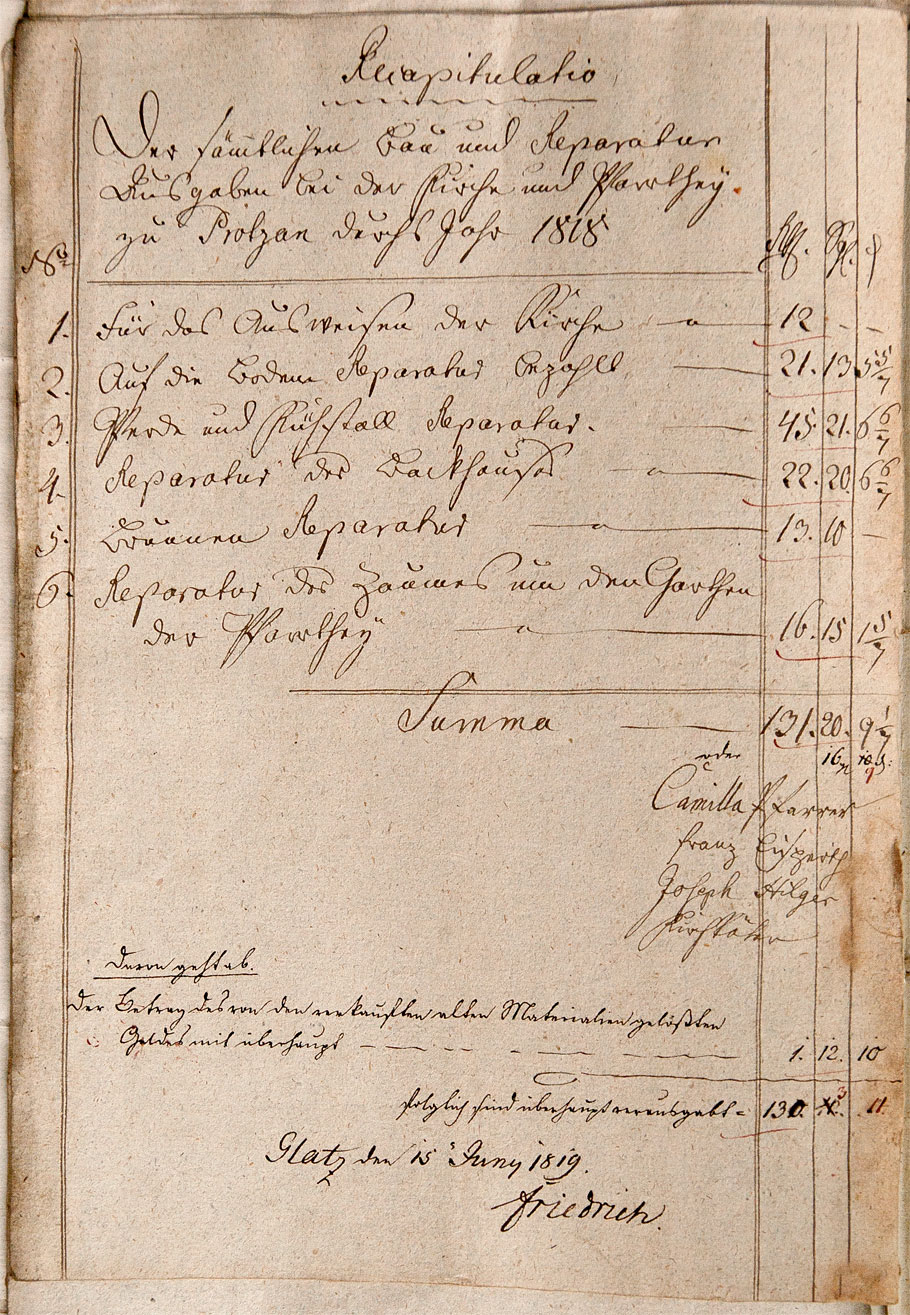 Recapitulatio
Der sämtlichen Bau und Reparatur
Ausgaben bei der Kirche und Pfarrthey
zu Protzan durchs Jahr 1818
No Rtl. Sgl. d
1. Für das Ausweisen der Kirche 12 - -
2. Auf die Boden Reparatur bezahlt 21. 13. 5 5/7
3. Pferde und Kühstall Reparatur. 45. 21. 6 6/7
4. Reparatur des Backhauses 22. 20. 6 6/7
5. Brunnen Reparatur 13. 10 -
6. Reparatur des Zaunes um den Garthen
der Pfarrthey 16. 15 1 5/7
Summa 131. 20. 9 1/7
oder 16
Camilla Pfarrer
Franz
Joseph Hilger
Kirchväter
Davon geht ab.
Der Betrag des von den verkauften alten Materialien gelößten
Geldes mit überhaupt 1. 12. 10
folglich sind überhaupt verausgabt = 130. 3 11.
Glatz den 15 Juny 1819.
Friedrich.